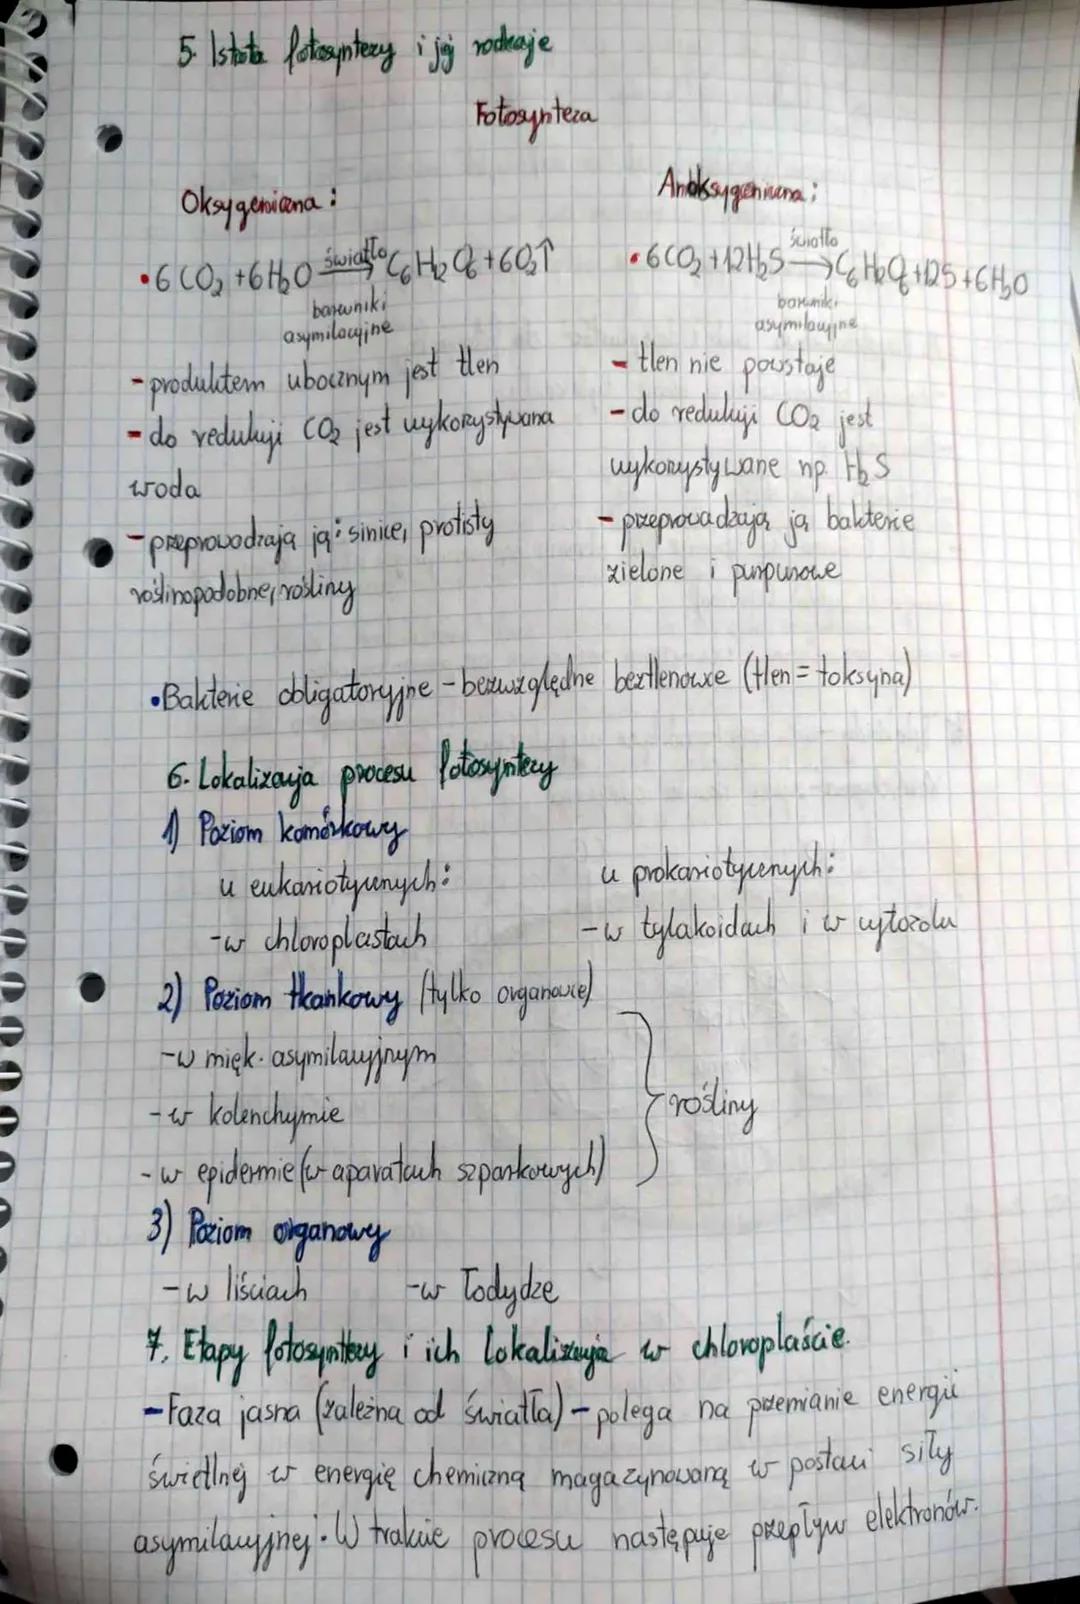 5. Istota fotosyntezy i jej rodzaje
Fotosynteza
Oksygeniczna:
•6CO₂+6H₂O światło→ C₆H₁₂O₆+6O₂↑
barwniki
asymilacyjne
-produktem ubocznym jest tlen
-do redukcji CO₂ jest wykorzystywana
woda
-przeprowadzają ją: sinice, protisty
roślinopodobne, rośliny
Anoksygeniczna:
•6CO₂+12H₂S światło→ C₆H₁₂O₆+12S+6H₂O
barwniki
asymilacyjne
-tlen nie powstaje
-do redukcji CO₂ jest
wykorzystywane np. H₂S
-przeprowadzają ją bakterie
zielone i purpurowe
•Bakterie obligatoryjne - bezwzględne beztlenowce (tlen = toksyna)
6. Lokalizacja procesu fotosyntezy
1) Poziom komórkowy
u eukariotycznych:
-w chloroplastach
u prokariotycznych:
-w tylakoidach i w cytozolu
2) Poziom tkankowy (tylko organowce)
-w mięk. asymilacyjnym
-w kolenchymie
-w epidermie (w aparatach szparkowych)
rośliny
3) Poziom organowy
-w liściach -w łodydze
7. Etapy fotosyntezy i ich lokalizacja w chloroplaście.
-Faza jasna (zależna od światła) - polega na przemianie energii
świetlnej w energię chemiczną magazynowaną w postaci siły
asymilacyjnej. W trakcie procesu następuje przepływ elektronów.